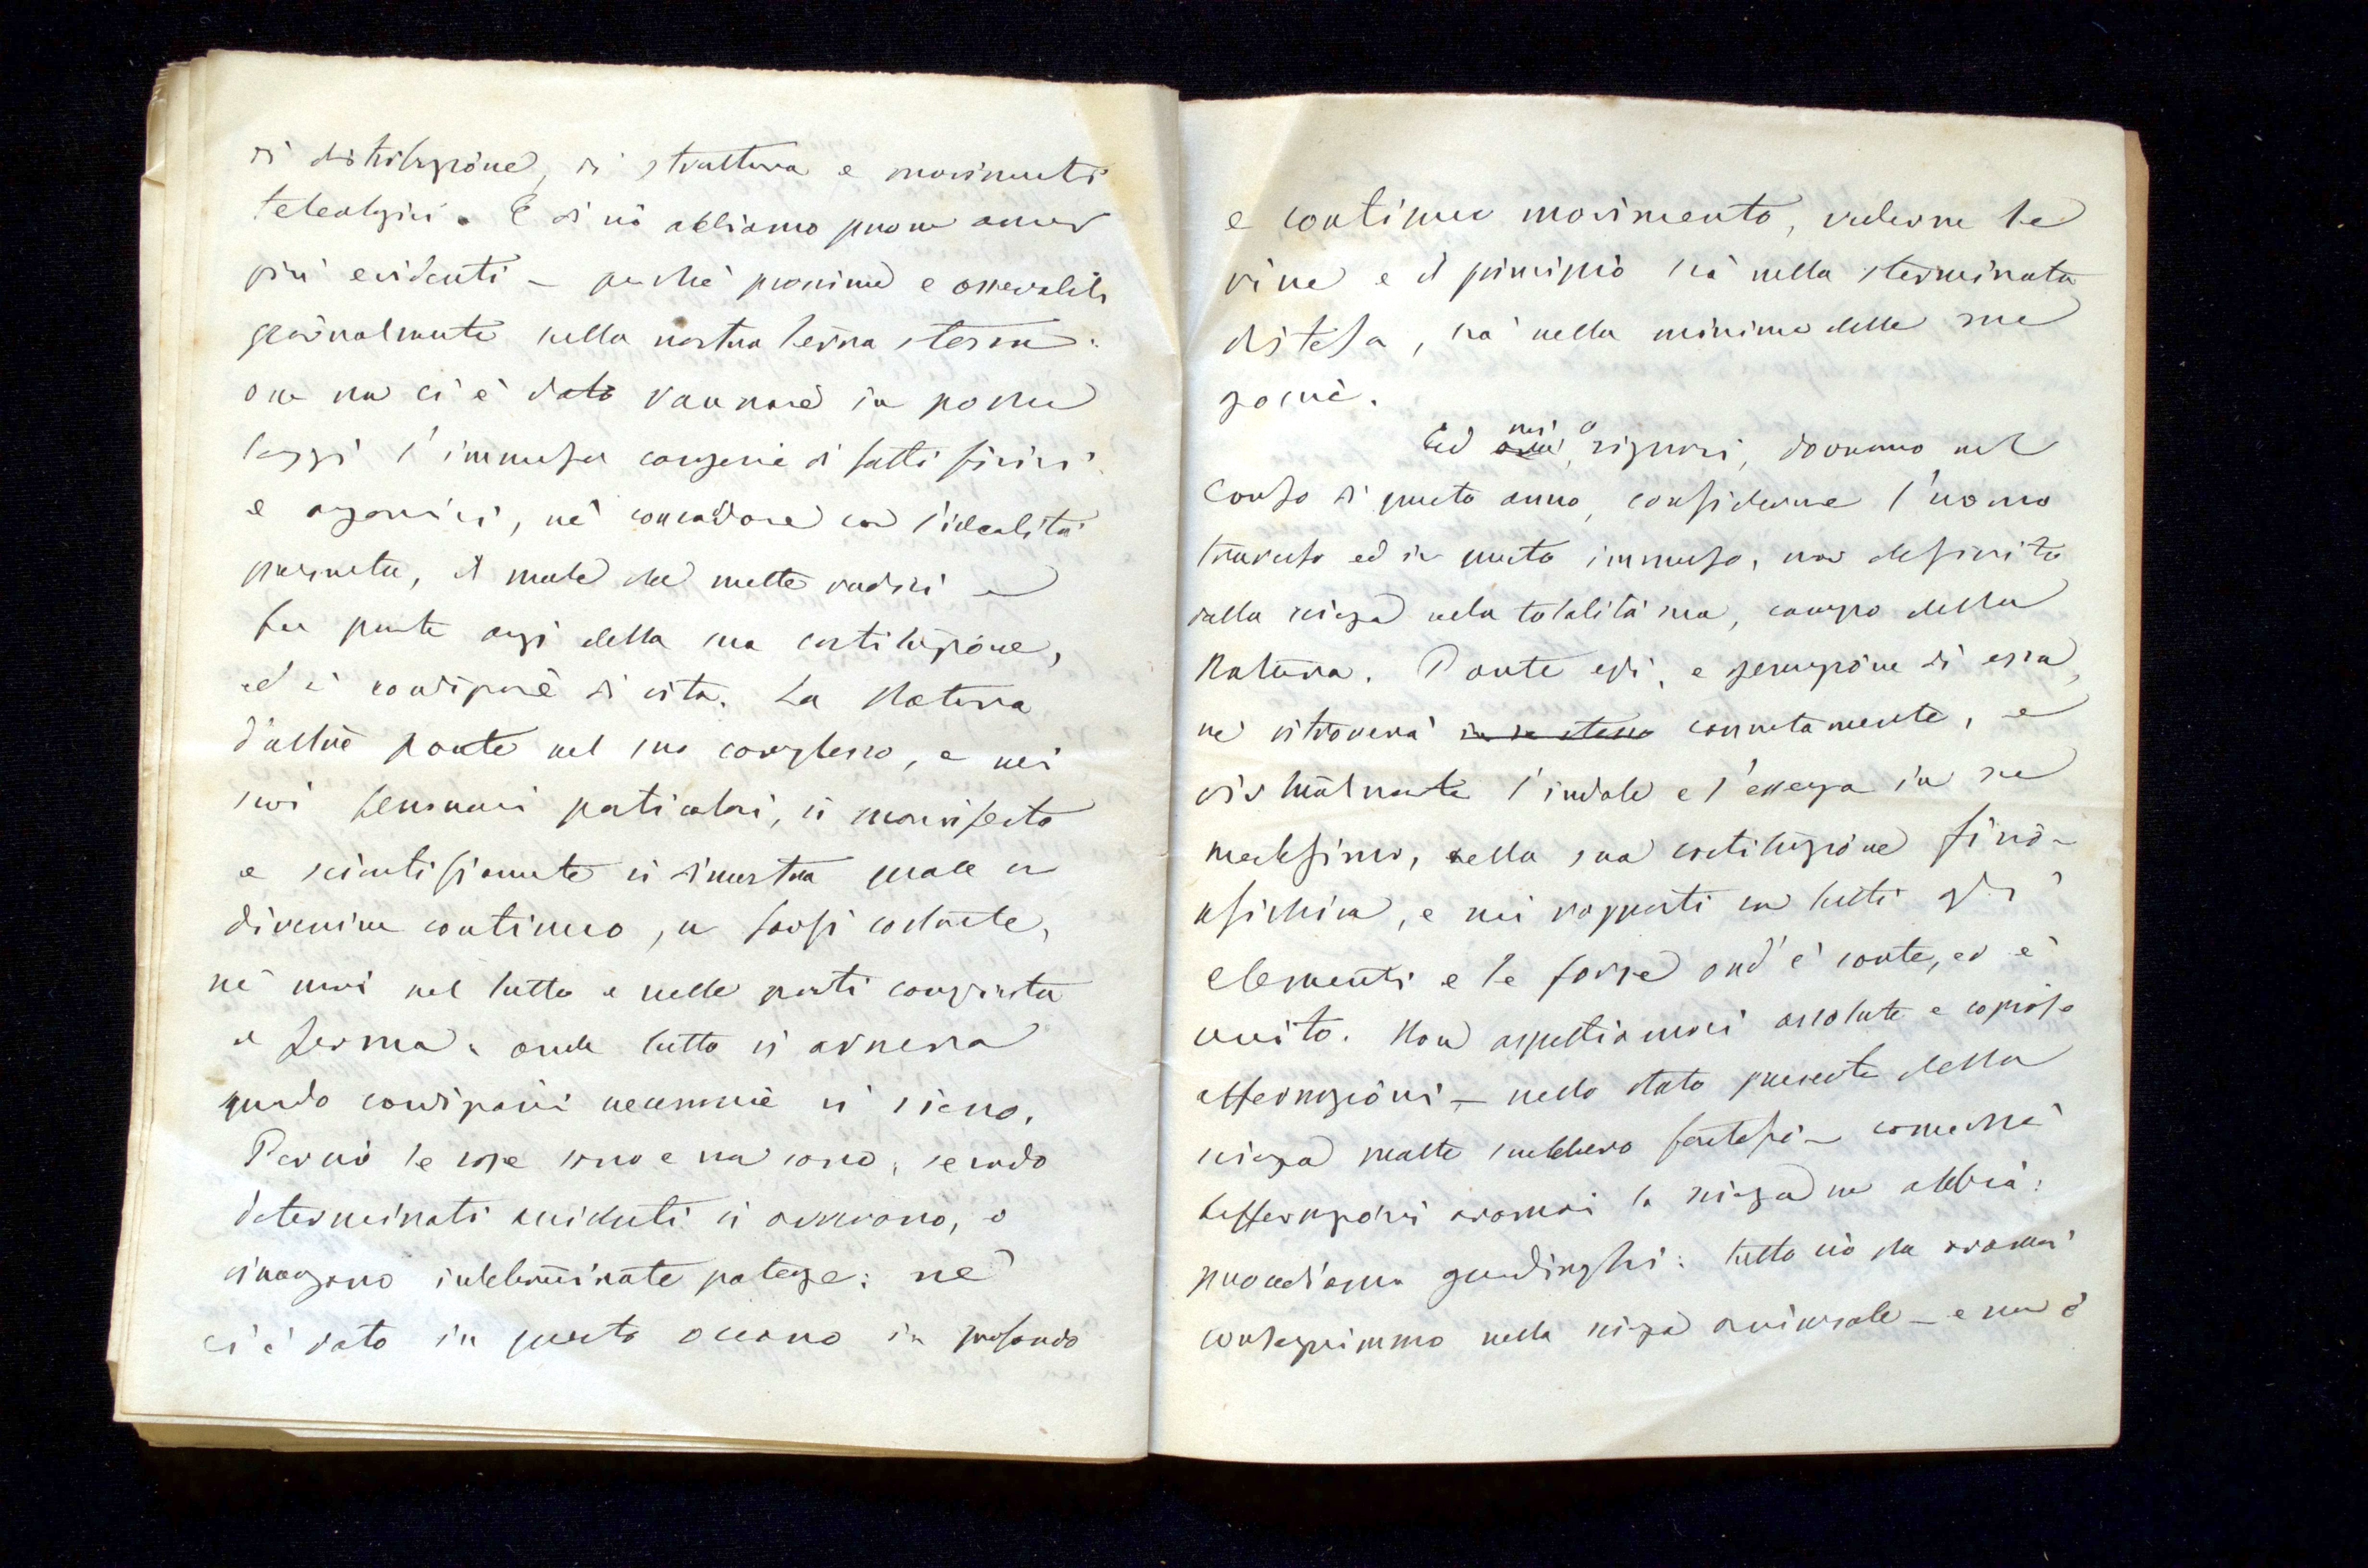 di distribuzione, di struttura e movimenti
teleologici. E di ciò abbiamo prove ancor
più evidenti – perchè prossime e osservabili
giornalmente nella nostra terra stessa:
one non ci è dato rannare in poche
leggi l'immensa congerie di fatti fisici
e organici, nè concordare con l'idealità
pensata, il male che mette radici e
fa parte anzi della sua costituzione,
ed è condizione di vita. La Natura
d'altra parte nel suo complesso, e nei
suoi fenomeni particolari, si manifesta
e scientificamente si dimostra quale un
divenire continuo, un farsi costante,
nè mai nel tutto e nelle parti compiuta
e ferma: onde tutto si avvera
quando condizioni necessarie vi sieno.
Perciò le cose sono e non sono; secondo
determinati accidenti si avverano, o
rimangono indeterminate potenze: nè
ci è dato in questo oceano in profondo
e continuo movimento, vederne le
rive e il principio sia nella sterminata
distesa, sia nella minima delle sue
gocce.
Ed noi, signori, dovremo nel
Corso di questo anno, considerare l'uomo
in questo immenso, non definito
dalla scienza nella totalità sua, campo della
Natura. Parte egli, e generazione di essa,
ne ritroverà in se stesso concretamente, e
virtualmente l'indole e l'essenza in se
medesimo, nella sua costituzione fisio-
psichica, e nei rapporti con tutti gli
elementi e le forze ond'è conte, ed è
unito. Non aspettiamoci assolute e copiose
affermazioni – nello stato presente della
scienza molte sarebbero fantasie – comecchè
affermazioni oramai la scienza ne abbia:
procediamo guardinghi: tutto ciò che oramai
conseguimmo nella scienza universale – e non è